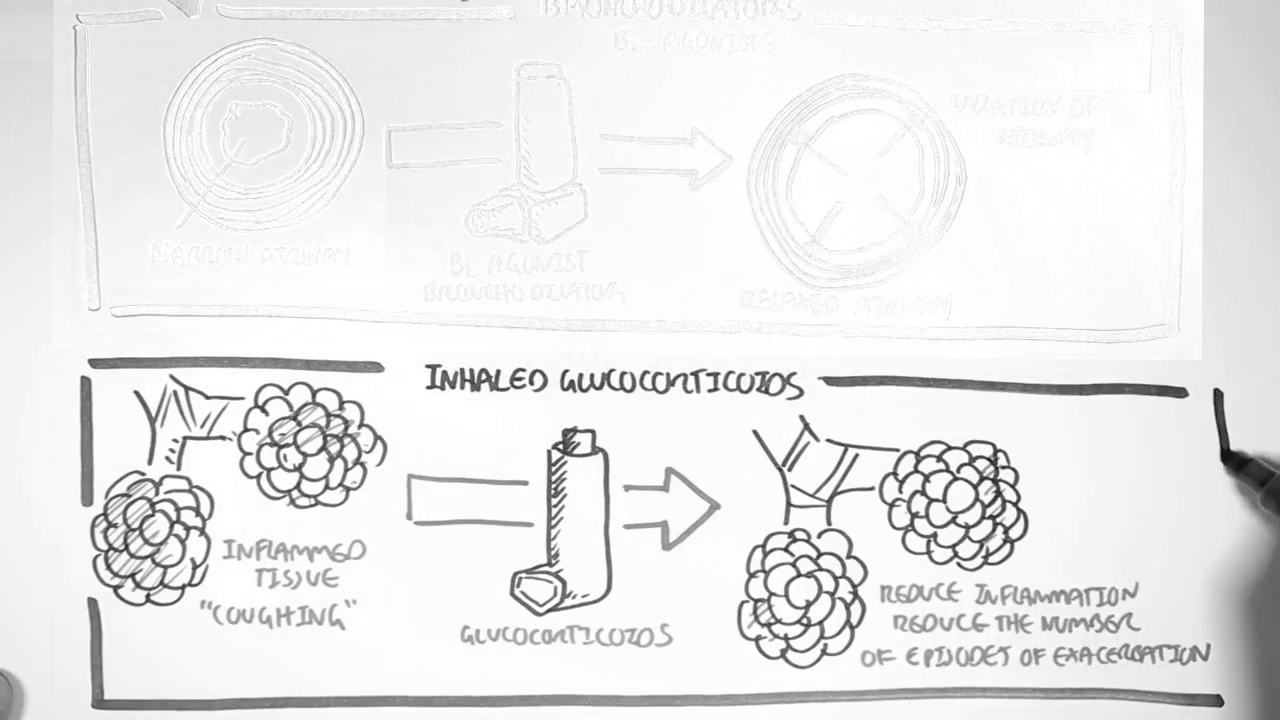 BRONCHODILATORS
B₂-AGONISTS
DILATION OF
AIRWAY
NARROW AIRWAY
B₂ AGONIST
BRONCHODILATOR
RELAXED AIRWAY
INHALED GLUCOCORTICOIDS
INFLAMMED
TISSUE
"COUGHING"
GLUCOCORTICOIDS
REDUCE INFLAMMATION
REDUCE THE NUMBER
OF EPISODES OF EXACERBATION